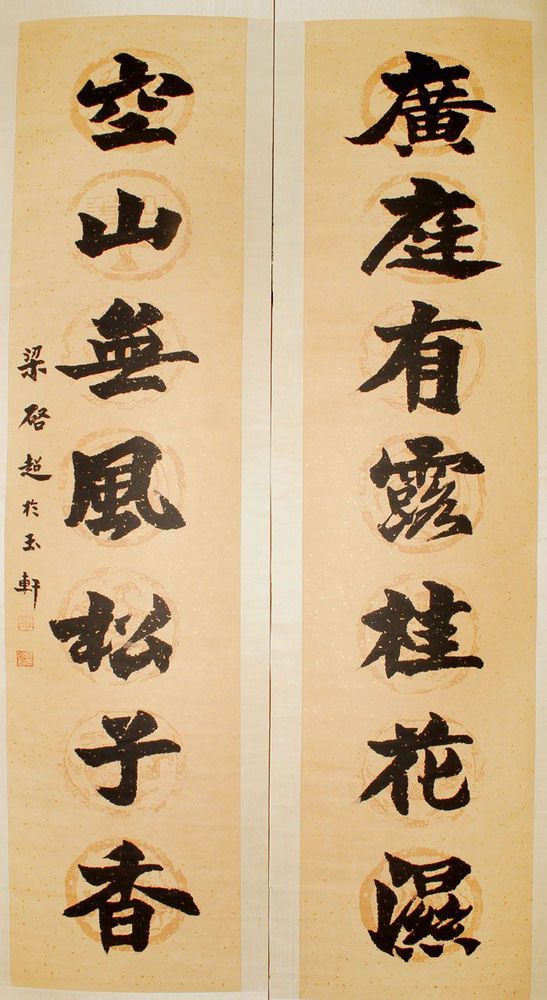 廣庭有露桂花濕
空山無風松子香
梁啓超於玉軒